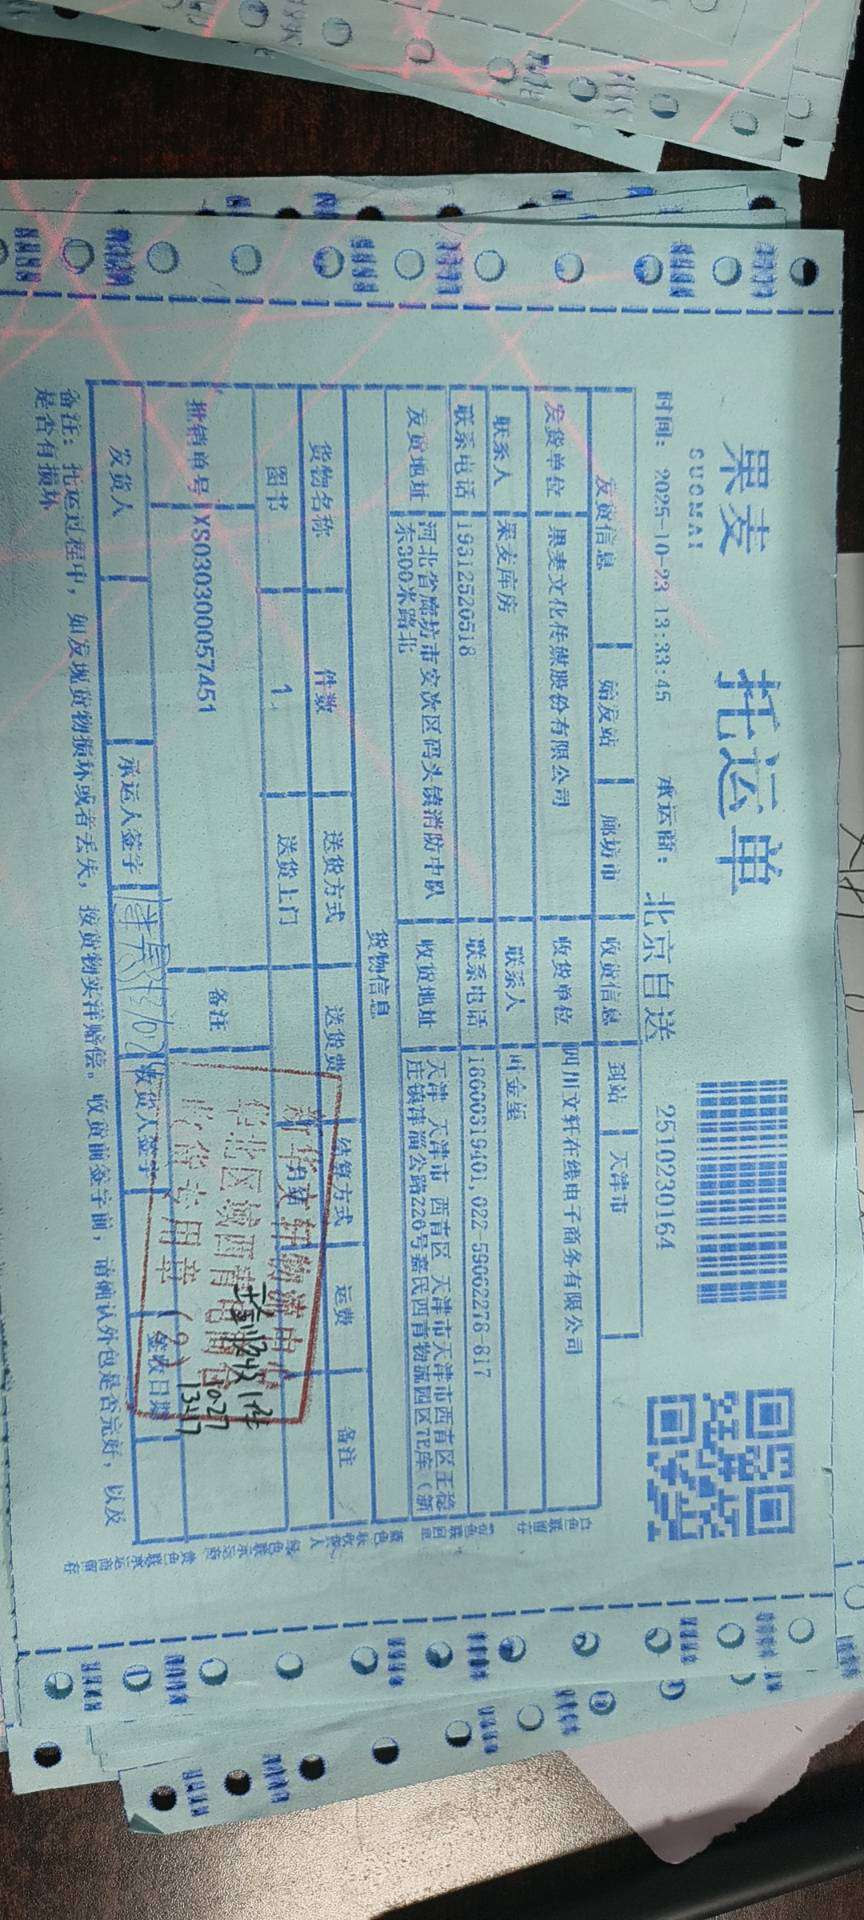 果麦
GUOMAI
托运单
时间: 2025-10-23 13:33:45 承运商: 北京自送 2510230164
发货信息 始发站 廊坊市 收货信息 到站 天津市
发货单位 果麦文化传媒股份有限公司 收货单位 四川文轩在线电子商务有限公司
联系人 果麦库房 联系人 叶金玺
联系电话 19312520518 联系电话 18600319401,022-59062278-817
发货地址 河北省廊坊市安次区码头镇消防中队东300米路北 收货地址 天津 天津市 西青区 天津市天津市西青区王稳庄镇津淄公路226号嘉民西青物流园区7E库（新
货物信息
货物名称 件数 送货方式 送货费 结算方式 运费 备注
图书 1 送货上门 月结
批销单号 XS030300057451 备注
新华文轩物流中心
华北区域西青电商仓
收货专用章
(9)
实收1件
10.27
13:47
发货人 承运人签字 收货人签字 签收日期
备注: 托运过程中, 如发现货物损坏或者丢失, 按货物实洋赔偿。收货前签字前, 请确认外包是否完好, 以及
是否有损坏